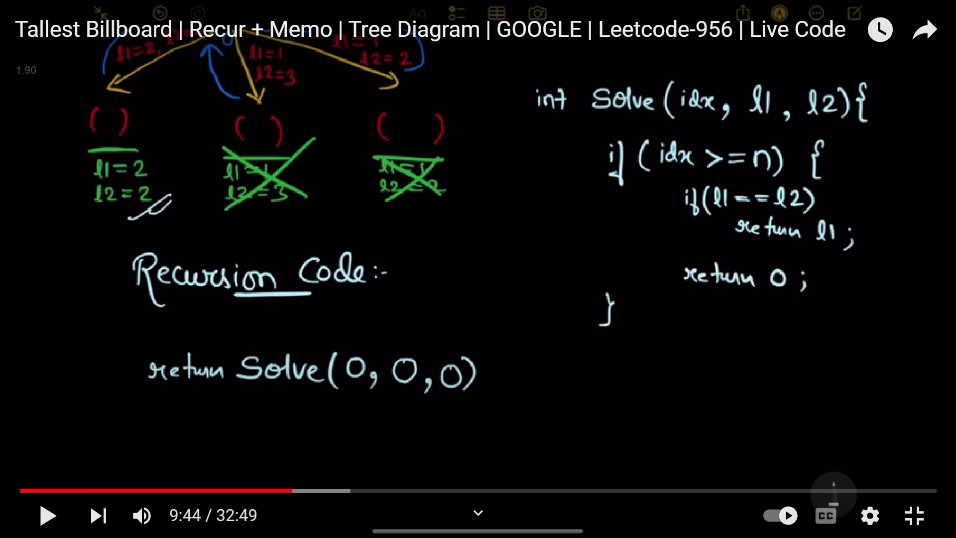 Tallest Billboard | Recur + Memo | Tree Diagram | GOOGLE | Leetcode-956 | Live Code
1.90
l1=2,
l1=1
l2=3
l1=1
l2=2
( )
( )
( )
l1=2
l2=2
l1=1
l2=3
l1=1
l2=2
Recursion Code:-
return Solve(0, 0, 0)
int Solve (idx, l1, l2){
if (idx >= n) {
if(l1 == l2)
return l1;
return 0;
}
9:44 / 32:49
CC